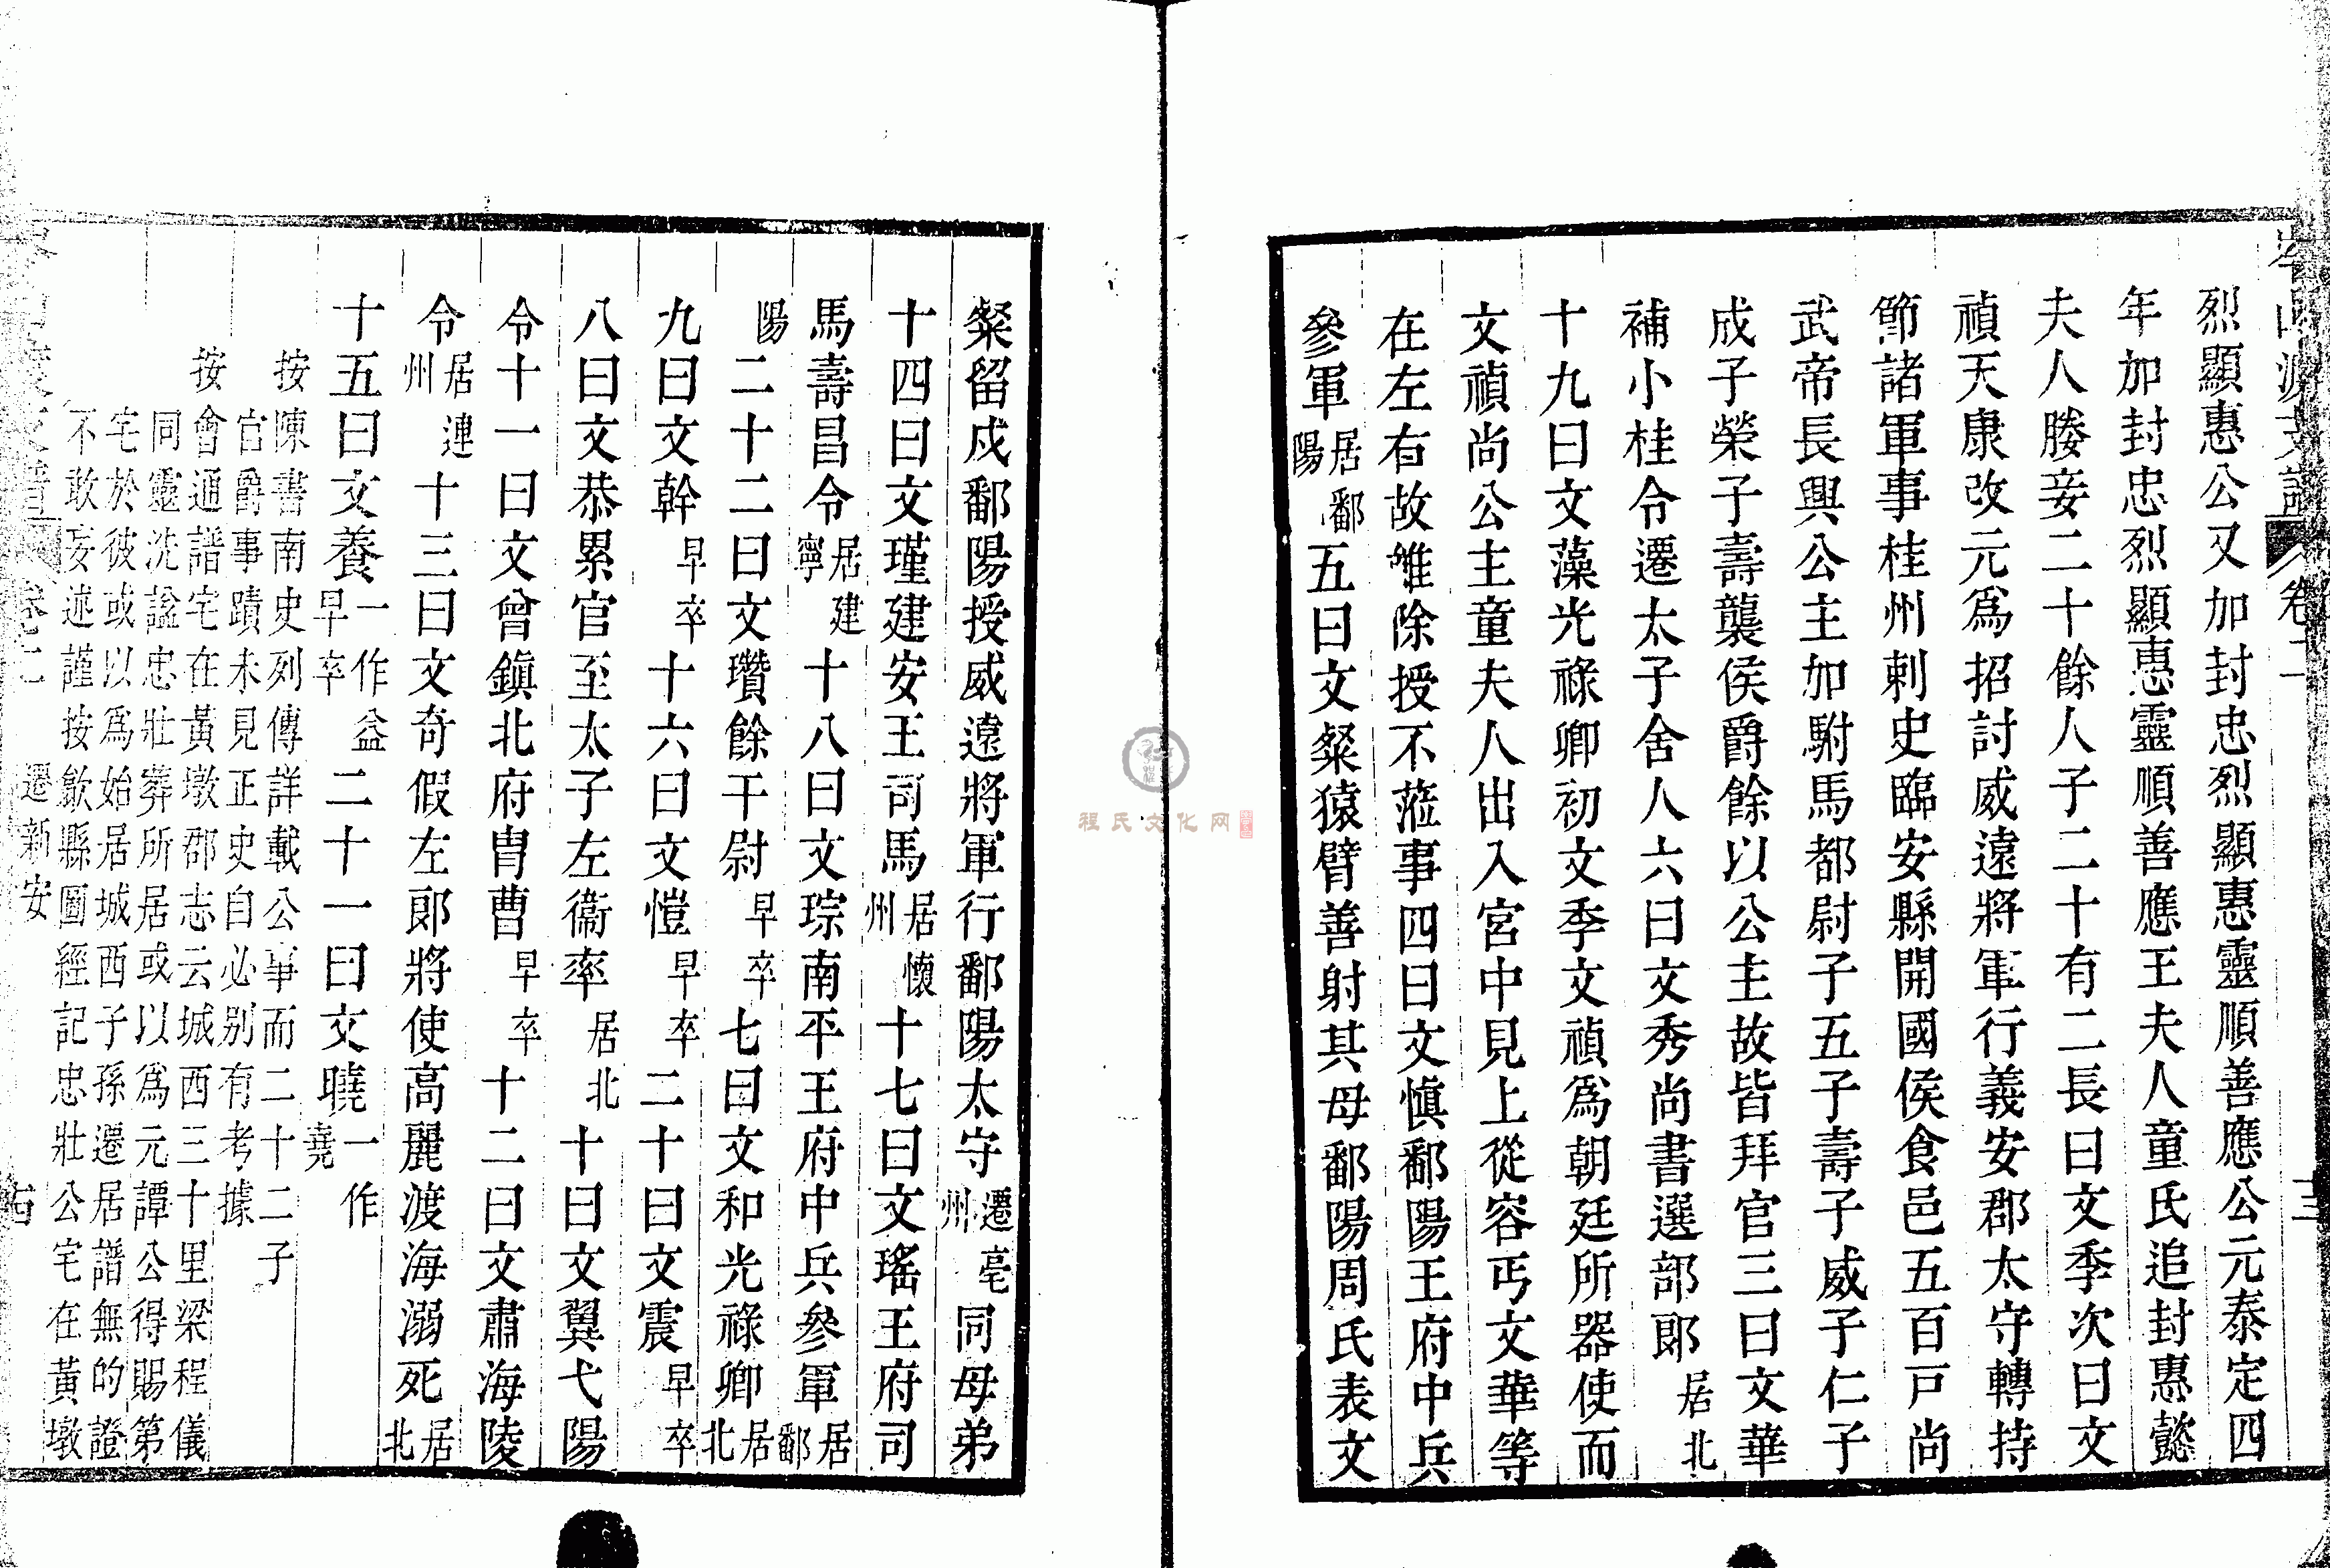 烈顯惠公又加封忠烈顯惠靈順善應公元泰定四
年加封忠烈顯惠靈順善應王夫人童氏追封惠懿
夫人媵妾二十餘人子二十有二長曰文季次曰文
禎天康改元爲招討威遠將軍行義安郡太守轉持
節諸軍事桂州刺史臨安縣開國侯食邑五百戸尚
武帝長興公主加駙馬都尉子五子壽子威子仁子
成子榮子壽襲侯爵餘以公主故皆拜官三曰文華
補小桂令遷太子舍人六曰文秀尚書選部郞居北
十九曰文藻光祿卿初文季文禎爲朝廷所器使而
文禎尚公主童夫人出入宮中見上從容丐文華等
在左右故雖除授不蒞事四曰文愼鄱陽王府中兵
參軍居鄱陽五曰文粲猿臂善射其母鄱陽周氏表文
粲留戍鄱陽授威遠將軍行鄱陽太守遷亳州同母弟
十四曰文瑾建安王司馬居懷州十七曰文瑤王府司
馬壽昌令居建寧十八曰文琮南平王府中兵參軍居鄱
陽二十二曰文瓚餘干尉早卒七曰文和光祿卿居北
九曰文幹早卒十六曰文愷早卒二十曰文震早卒
八曰文恭累官至太子左衞率居北十曰文翼弋陽
令十一曰文曾鎭北府冑曹早卒十二曰文肅海陵
令居連州十三曰文奇假左郞將使高麗渡海溺死居北
十五曰文養一作益早卒二十一曰文曉一作堯
按陳書南史列傳詳載公事而二十二子
官爵事蹟未見正史自必别有考據
按會通譜宅在黃墩郡志云城西三十里梁程儀
同靈洗諡忠壯葬所居或以爲元譚公得賜第
宅於彼或以爲始居城西子孫遷居譜無的證
不敢妄述謹按歙縣圖經記忠壯公宅在黃墩
卷二 遷新安
程氏文化网